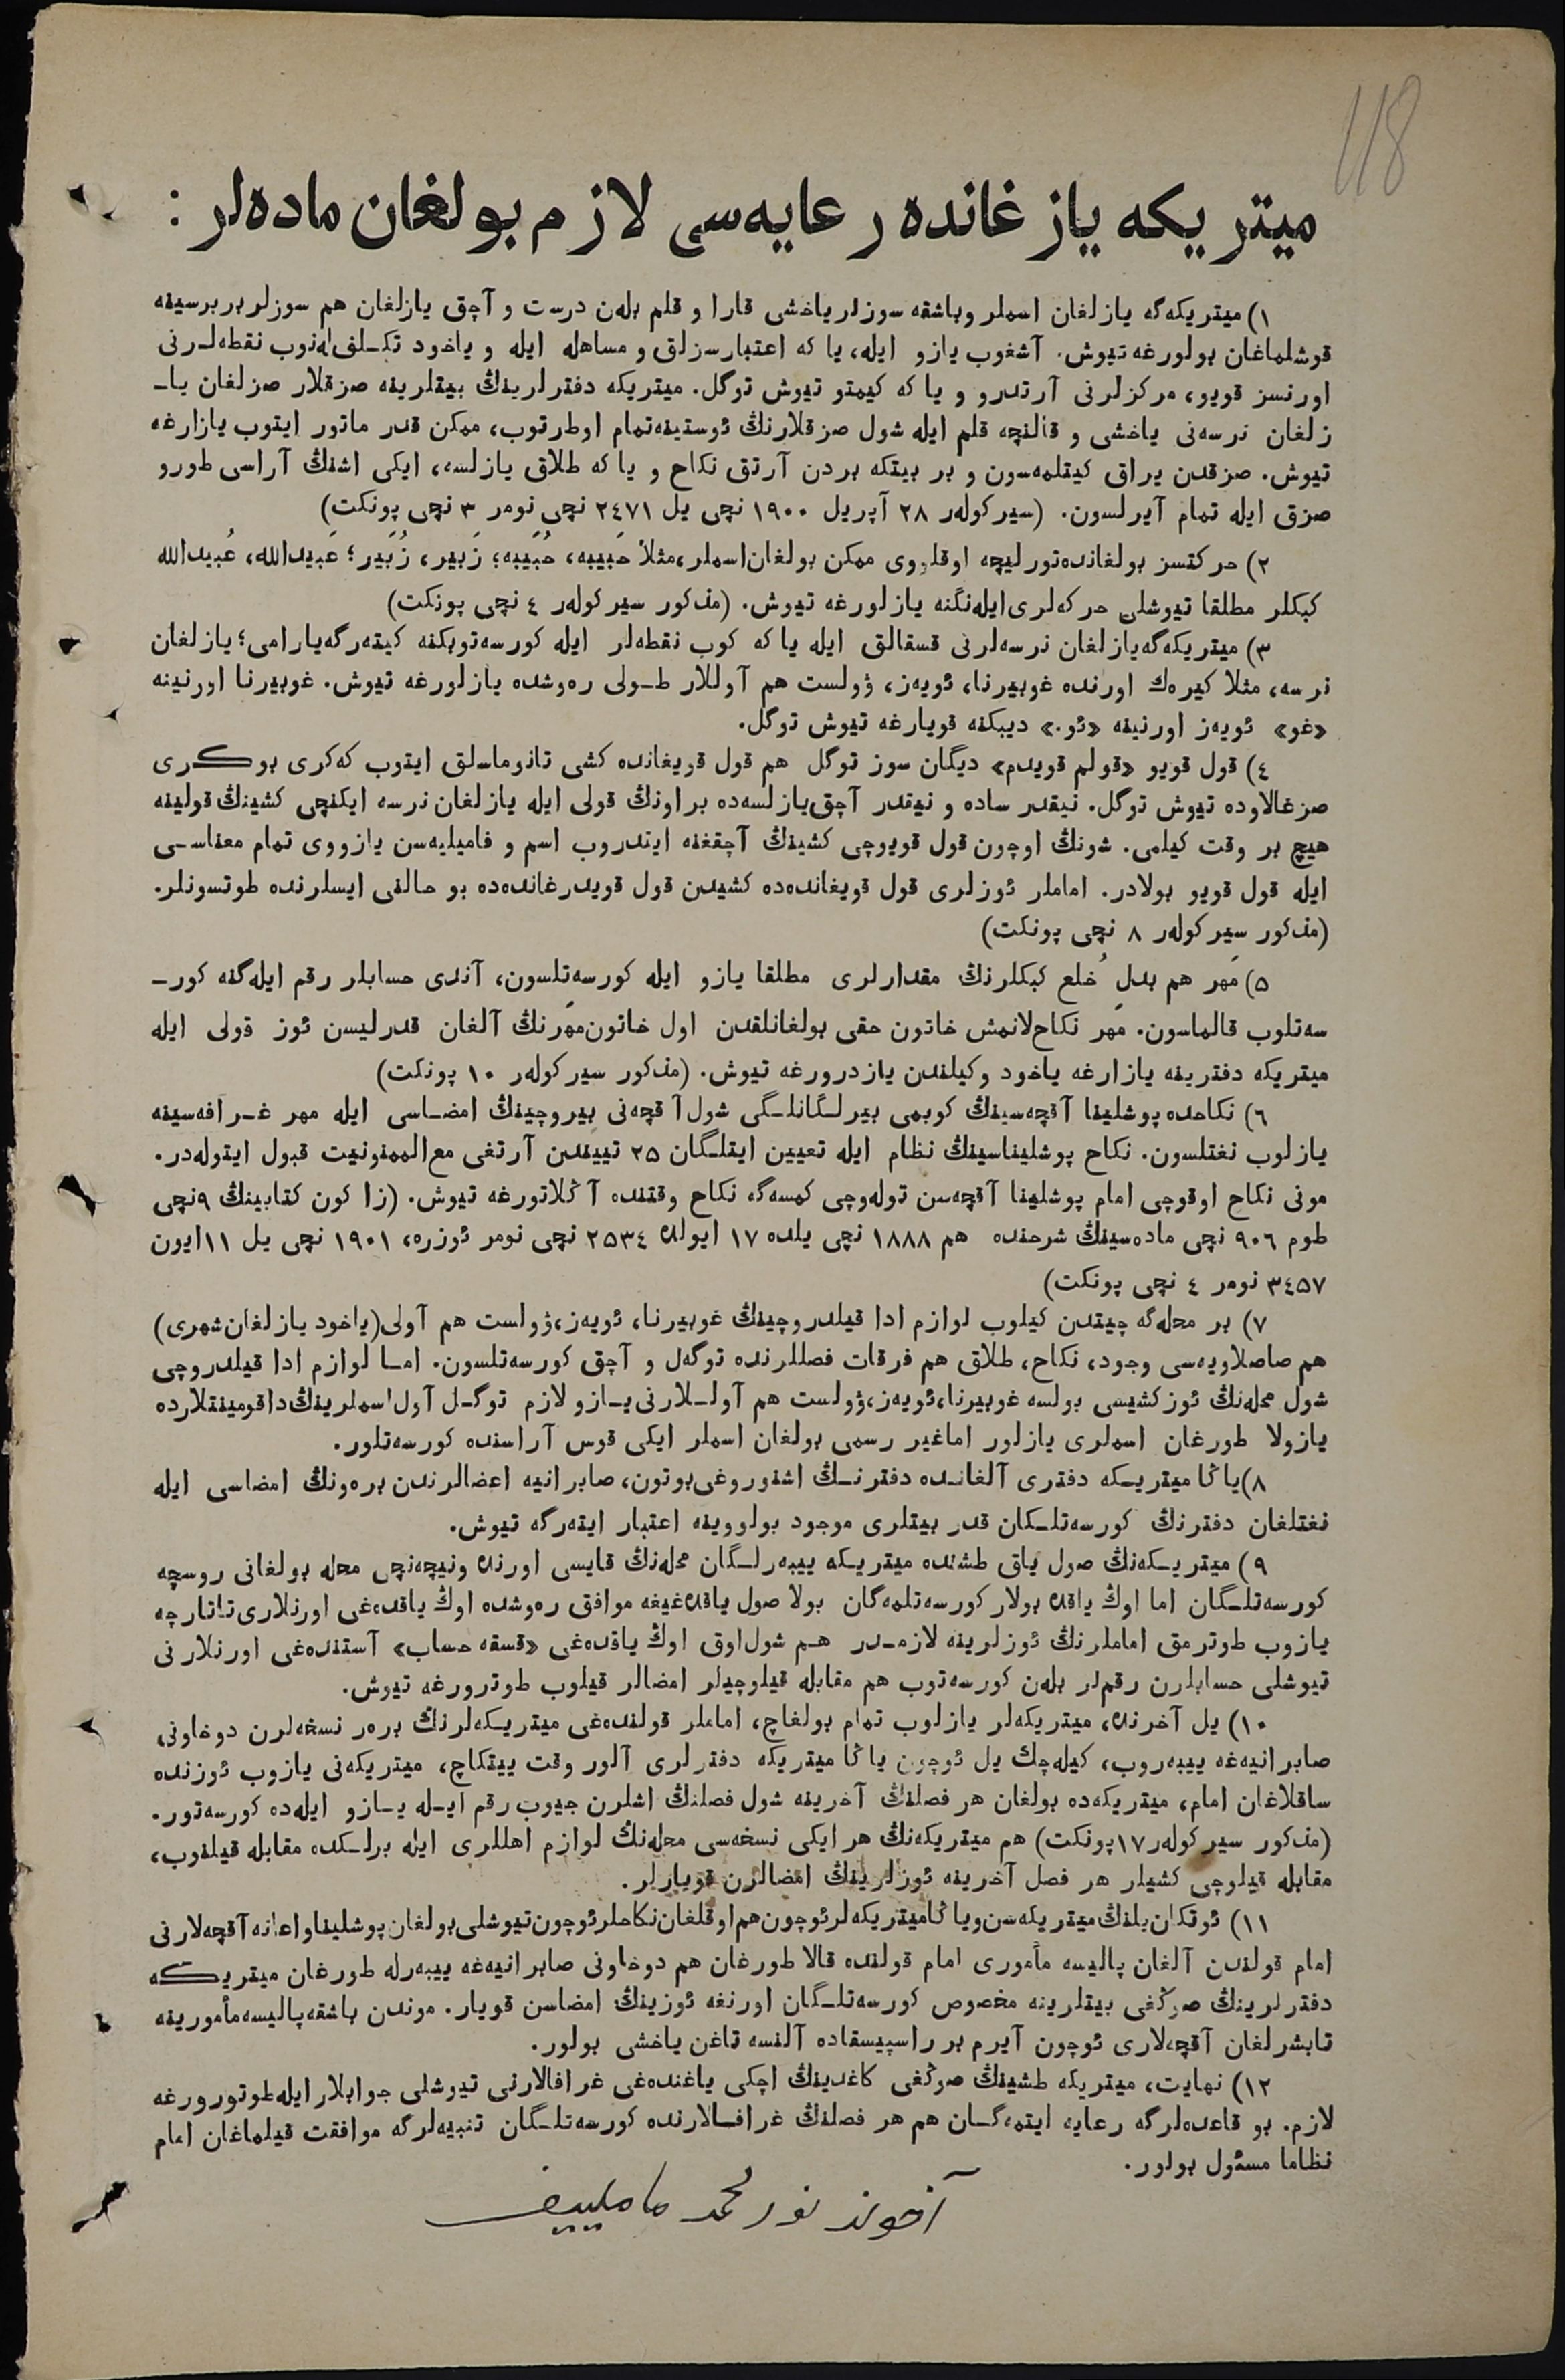 118
ميتريكه يازغانده رعايه‌سى لازم بولغان ماده‌لر :
١) ميتريكه‌گه يازلغان اسملر وباشقه سوزلر ياخشى قارا و قلم بله‌ن درست و آچق يازلغان هم سوزلر بر برسينه
قوشلماغان بولورغه تيوش. آشغوب يازو ايله، يا كه اعتبارسزلق و مساهله ايله و ياخود تكلف‌له‌نوب نقطه‌لرنى
اورنسز قويو، مركزلرنى آرتدرو و يا كه كيمتو تيوش توگل. ميتريكه دفترلرينڭ بيتلرينه صزقلار صزلغان يا‌ـ
زلغان نرسه‌نى ياخشى و قالنچه قلم ايله شول صزقلارنڭ ئوستينه‌تمام اوطرتوب، ممكن قدر ماتور ايتوب يازارغه
تيوش. صزقدن يراق كيتلمه‌سون و بر بيتكه بردن آرتق نكاح و يا كه طلاق يازلسه، ايكى اشنڭ آراسى طورو
صزق ايله تمام آيرلسون. (سيركولەر ٢٨ آپريل ١٩٠٠ نچى يل ٢٤٧١ نچى نومر ٣ نچى پونكت)
٢) حركتسز بولغانده‌تورليچه اوقلووى ممكن بولغان‌اسملر،مثلاً حَبيبه، حُبَيبه؛ زَبير، زُبَير؛ عَبيدالله، عُبيدالله
كبكلر مطلقا تيوشلى حركه‌لرى‌ايله‌نگنه يازلورغه تيوش. (مذكور سيركولەر ٤ نچى پونكت)
٣) ميتريكه‌گه‌يازلغان نرسه‌لرنى قسقالق ايله يا كه كوب نقطه‌لر ايله كورسه‌توبكنه كيته‌رگه‌يارامى؛ يازلغان
نرسه، مثلا كيره‌ك اورنده غوبيرنا، ئويه‌ز، ۋولست هم آوللار طـولى ره‌وشده يازلورغه تيوش. غوبيرنا اورنينه
«غو» ئويه‌ز اورنينه «ئو.» ديبكنه قويارغه تيوش توگل.
٤) قول قويو «قولم قويدم» ديگان سوز توگل هم قول قويغانده كشى تانوماسلق ايتوب كه‌كرى بوكرى
صزغالاوده تيوش توگل. نيقدر ساده و نيقدر آچق‌يازلسه‌ده براونڭ قولى ايله يازلغان نرسه ايكنچى كشينڭ‌قولينه
هيچ بر وقت كيلمى. شونڭ اوچون قول قويوچى كشينڭ آچقغنه ايتدروب اسم و فاميليه‌سن يازووى تمام معناسـى
ايله قول قويو بولادر. اماملر ئوزلرى قول قويغانده‌ده كشيدن قول قويدرغانده‌ده بو حالنى ايسلرنده طوتسونلر.
(مذكور سيركولەر ٨ نچى پونكت)
٥) مَهر هم بدل خُلع كبكلرنڭ مقدارلرى مطلقا يازو ايله كورسه‌تلسون، آندى حسابلر رقم ايله‌گنه كورـ
سه‌تلوب قالماسون. مَهر نكاح‌لانمش خاتون حقى بولغانلقدن اول خاتون‌مَهرنڭ آلغان قدرليسن ئوز قولى ايله
ميتريكه دفترينه يازارغه ياخود وكيلندن يازدرورغه تيوش. (مذكور سيركولەر ١٠ پونكت)
٦) نكاحده پوشلينا آقچه‌سينڭ كوبمى بيرلـگانلـگى شول آقچه‌نى بيروچينڭ امضـاسى ايله مهر غـرافه‌سينه
يازلوب نغتلسون. نكاح پوشليناسينڭ نظام ايله تعيين ايتلـگان ٢٥ تييندن آرتغى مع‌الممنونيت قبول ايتوله‌در.
مونى نكاح اوقوچى امام پوشلينا آقچه‌سن توله‌وچى كمسه‌گه نكاح وقتنده آڭلاتورغه تيوش. (زاكون كتابينڭ ٩نچى
طوم ٩٠٦ نچى ماده‌سينڭ شرحنده هم ١٨٨٨ نچى يلده ١٧ ايولده ٢٥٣٤ نچى نومر ئوزره، ١٩٠١ نچى يل ١١ايون
٣٤٥٧ نومر ٤ نچى پونكت)
٧) بر محله‌گه چيتدن كيلوب لوازم ادا قيلدروچينڭ غوبيرنا، ئويه‌ز،ۋولست هم آولى(ياخود يازلغان‌شهرى)
هم صاصلاويه‌سى وجود، نكاح، طلاق هم فرقات فصللرنده توگه‌ل و آچق كورسه‌تلسون. امـا لوازم ادا قيلدروچى
شول محله‌نڭ ئوز كشيسى بولسه غوبيرنا،ئويه‌ز،ۋولست هم آولـلارنى‌يـازو لازم توگـل آول‌اسملرينڭ‌داقومينتلارده
يازولا طورغان اسملرى يازلور اماغير رسمى بولغان اسملر ايكى قوس آراسنده كورسه‌تلور.
٨)ياڭا ميتريـكه دفترى آلغانـده دفترنـڭ اشنوروغى‌بوتون، صابرانيه اعضالرندن بره‌ونڭ امضاسى ايله
نغتلغان دفترنڭ كورسه‌تلـكان قدر بيتلرى موجود بولووينه اعتبار ايته‌رگه تيوش.
٩) ميتريـكه‌نڭ صول ياق طشنده ميتريـكه يبه‌رلـگان محله‌نڭ قايسى اورنده ونيچه‌نچى محله بولغانى روسچه
كورسه‌تلـگان اما اوڭ ياقده بولار كورسه‌تلمه‌گان بولا صول ياقده‌غيغه موافق ره‌وشده اوڭ ياقده‌غى اورنلارى‌تاتارچه
يازوب طوترمق اماملرنڭ ئوزلرينه لازمـدر هـم شول‌اوق اوڭ ياقده‌غى «قسقه حساب» آستنده‌غى اورنلارنى
تيوشلى حسابلرن رقم‌لر بله‌ن كورسه‌توب هم مقابله قيلوچيلر امضالر قيلوب طوترورغه تيوش.
١٠) يل آخرنده، ميتريكه‌لر يازلوب تمام بولغاچ، اماملر قولنده‌غى ميتريـكه‌لرنڭ بره‌ر نسخه‌لرن دوخاونى
صابرانيه‌غه ييبه‌روب، كيله‌چك يل ئوچون ياڭا ميتريكه دفترلرى آلور وقت ييتكاچ، ميتريكه‌نى يازوب ئوزنده
ساقلاغان امام، ميتريكه‌ده بولغان هر فصلنڭ آخرينه شول فصلنڭ اشلرن جيوب رقم ايـله يـازو ايله‌ده كورسه‌تور.
(مذكور سيركولەر ١٧پونكت) هم ميتريكه‌نڭ هر ايكى نسخه‌سى محله‌نڭ لوازم اهللرى ايله برلـكده مقابله قيلنوب،
مقابله قيلوچى كشيلر هر فصل آخرينه ئوزلرينڭ امضالرن قويارلر.
١١) ئوتكان‌يلنڭ‌ميتريكه‌سن‌وياڭاميتريكه‌لرئوچون‌هم‌اوقلغان‌نكاحلرئوچون‌تيوشلى‌بولغان‌پوشليناواعانه‌آقچه‌لارنى
امام قولندن آلغان پاليسه مأمورى امام قولنده قالا طورغان هم دوخاونى صابرانيه‌غه ييبه‌رله طورغان ميتريكه
دفترلرينڭ صوڭغى بيتلرينه مخصوص كورسه‌تلـگان اورنغه ئوزينڭ امضاسن قويار. موندن باشقه‌پاليسه‌مأمورينه
تابشرلغان آقچه‌لارى ئوچون آيرم بر راسپيسقاده آلنسه تاغن ياخشى بولور.
١٢) نهايت، ميتريكه طشينڭ صوڭغى كاغدينڭ اچكى ياغنده‌غى غرافالارنى تيوشلى جوابلارايله‌طوتورورغه
لازم. بو قاعده‌لرگه رعايه ايتمه‌گـان هم هر فصلنڭ غرافـالارنده كورسه‌تلـگان تنبيه‌لرگه موافقت قيلماغان امام
نظاما مسئول بولور.
آخوند نورمحمد ماملييف